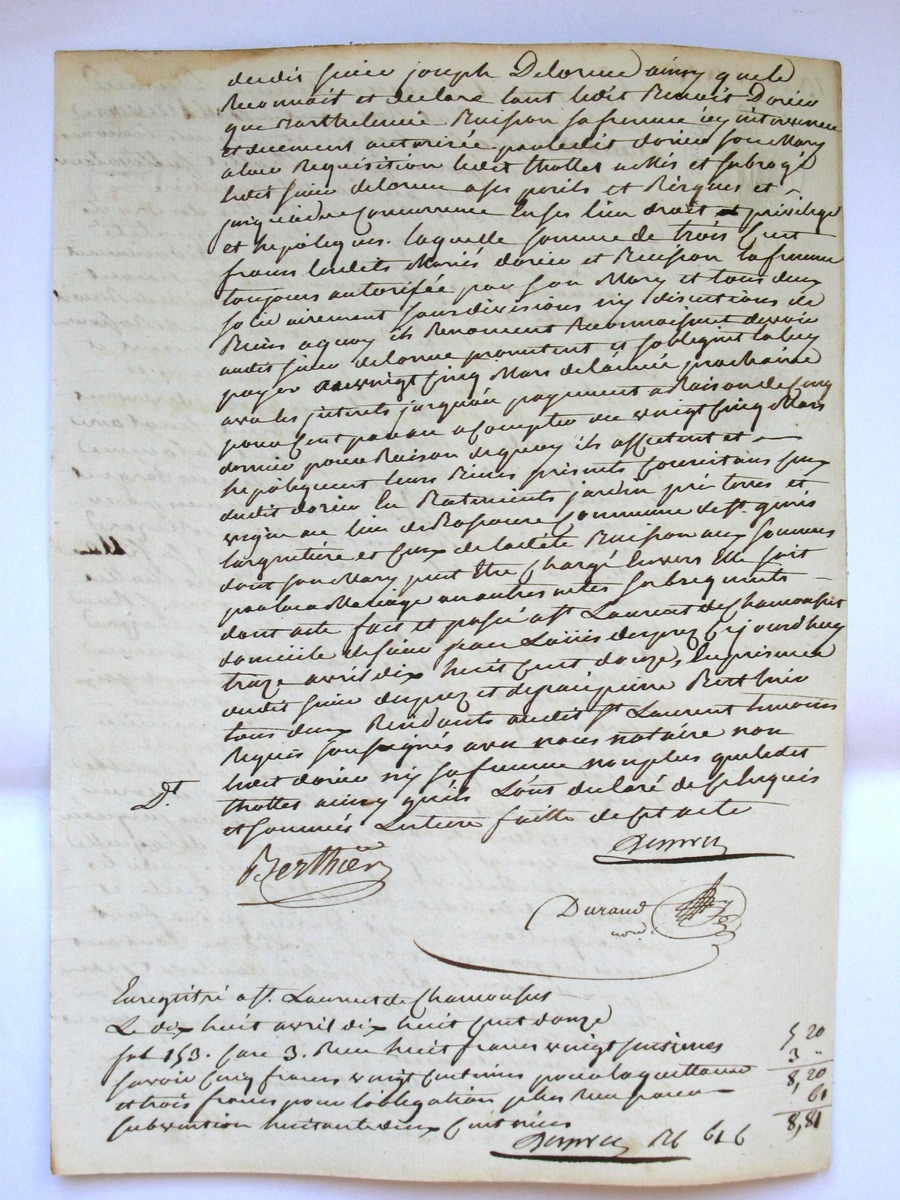 dudit sieur joseph Delorme ainsy que le
Reconnoit et declare tant ledit Benoit Dorier
que Barthelemie Buisson sa femme icy intervenue
et duement autorisée par ledit dorier son Mary
a leur Requisition ledit thollet a Mis et subrogé
ledit sieur delorme a ses perils et Risques et
jusqu'a due Concurrence En ses lieu droit et privileges
et hipoteques. laquelle somme de trois Cent
francs lesdits Mariés dorier et Buisson la femme
toujours autorisée par son Mary et tous deux
solidairement sans divisions ny discutions de
Biens a quoy ils Renoncent Reconnoissent devoir
audit sieur delorme promettent et s'obligent la luy
payer au vingt cinq Mars de l'année prochaine
avec les interets jusqu'au payement a Raison de cinq
pour Cent par an a Compter du vingt cinq Mars
dernier pour Raison de quoy ils affectent et
hipotequent leurs Biens presents consistans ceux
dudit dorier En Batiments jardin pré terres et
vigne au lieu de Commune de St. genis
largentiere et ceux de ladite Buisson aux sommes
dont son Mary peut Etre chargé Envers Elle soit
par leur Mariage ou autres actes subsequents
dont acte fait et passé a St. Laurent de Chamousset
domicile de sieur jean Louis dupuez cejourd'huy
treze avril dix huit cent douze, En presence
dudit sieur et de sieur pierre Berthier
tous deux Residants audit St. Laurent temoins
Requis soussignés avec nous notaire non
ledit dorier ny sa femme non plus que ledit
thollet ainsy qu'ils L'ont declaré de ce Enquis
et sommés Lecture faitte de cet acte
Dt.
Berthier
Durand
nore.
Enregistré a St. Laurent de Chamousset
Le dix huit avril dix huit cent douze
fol 153. case 3. Reçu huit francs vingt centimes
savoir cinq francs vingt centimes pour la quittance
et trois francs pour l'obligation plus Reçu pour
subvention huitante deux Centimes
5 20
3 "
8,20
61
8,81